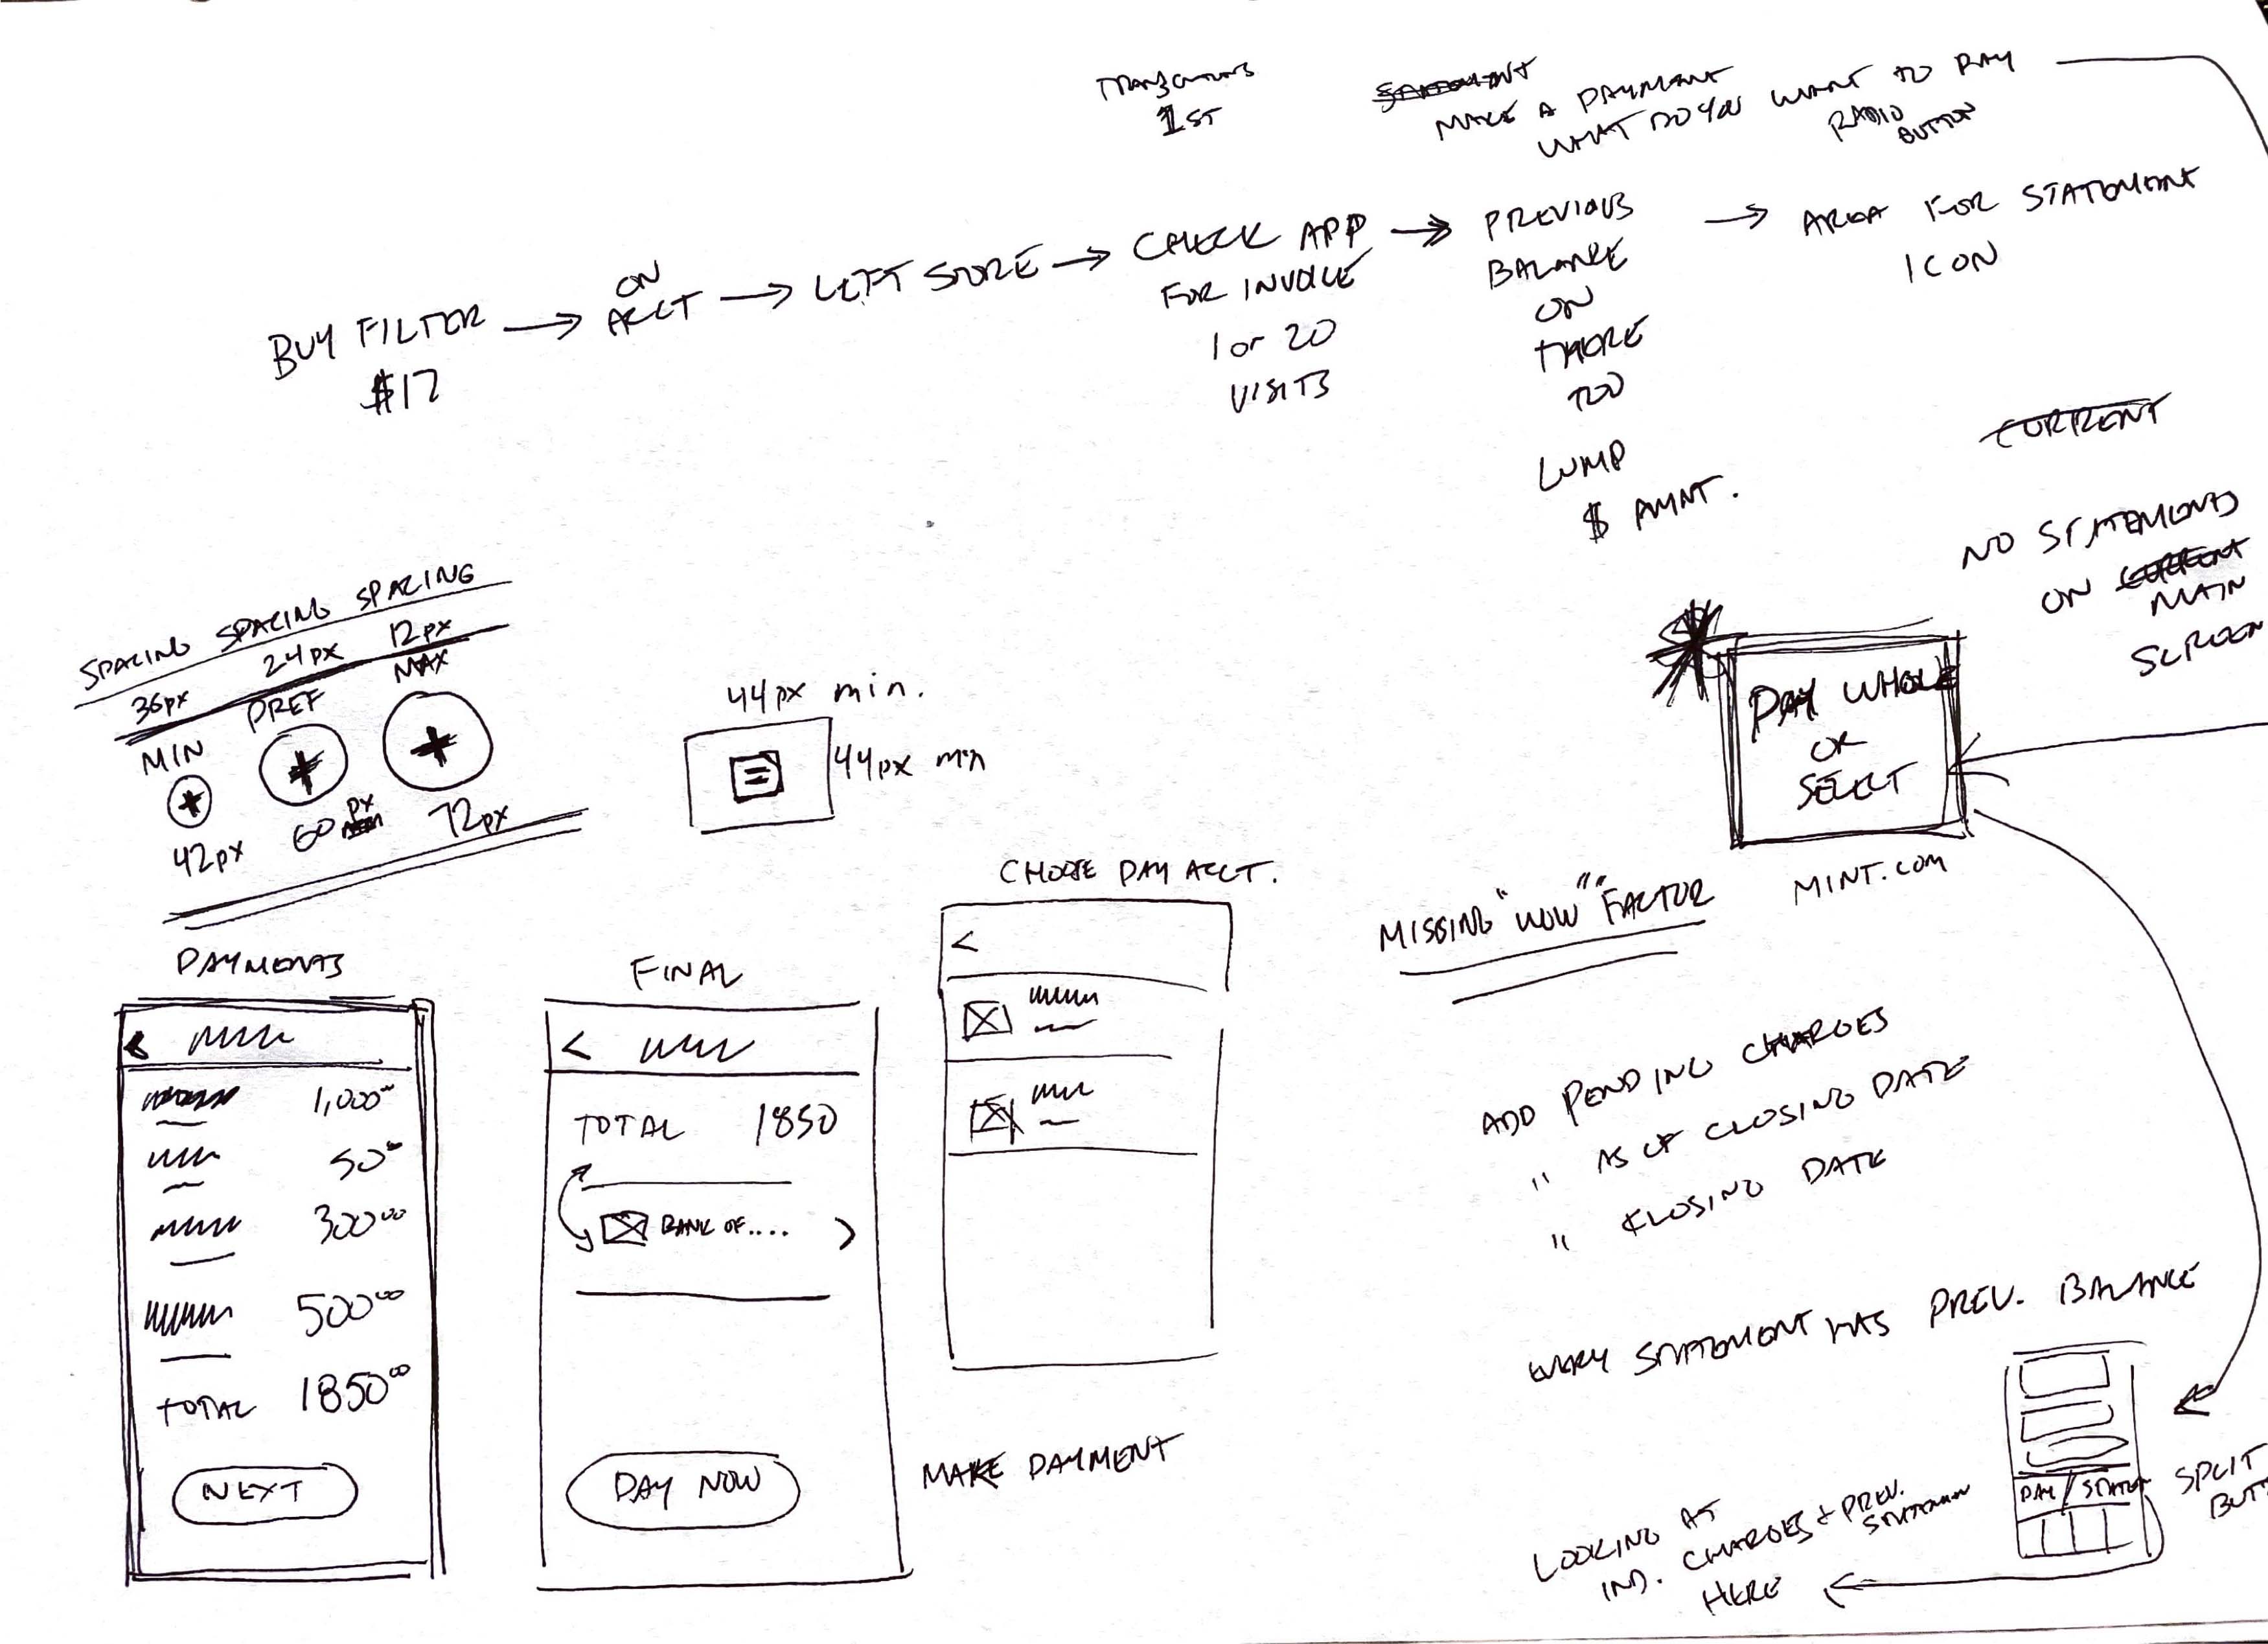 TRANSACTIONS
1ST
STATEMENT
MAKE A PAYMENT
WHAT DO YOU WANT TO PAY
RADIO
BUTTON
BUY FILTER
$17
ON
ACCT
LEFT STORE
CHECK APP
FOR INVOICE
1 or 20
VISITS
PREVIOUS
BALANCE
ON
THERE
TOO
LUMP
$ AMNT.
AREA FOR STATEMENT
ICON
CURRENT
NO STATEMENTS
ON CURRENT
MAIN
SCREEN
SPACING SPACING SPACING
36px 24px 12px
MIN PREF MAX
42px 60px 72px
44px min.
44px min
PAY WHOLE
OR
SELECT
MINT.COM
MISSING "WOW" FACTOR
CHOOSE PAY ACCT.
<
PAYMENTS
<
1,000.00
50.00
300.00
500.00
TOTAL 1850.00
NEXT
FINAL
<
TOTAL 1850
BANK OF....
>
PAY NOW
MAKE PAYMENT
ADD PENDING CHARGES
" AS OF CLOSING DATE
" CLOSING DATE
EVERY STATEMENT HAS PREV. BALANCE
PAY / STATE
SPLIT
BUTT
LOOKING AT
IND. CHARGES + PREV.
STATEMENT
HERE